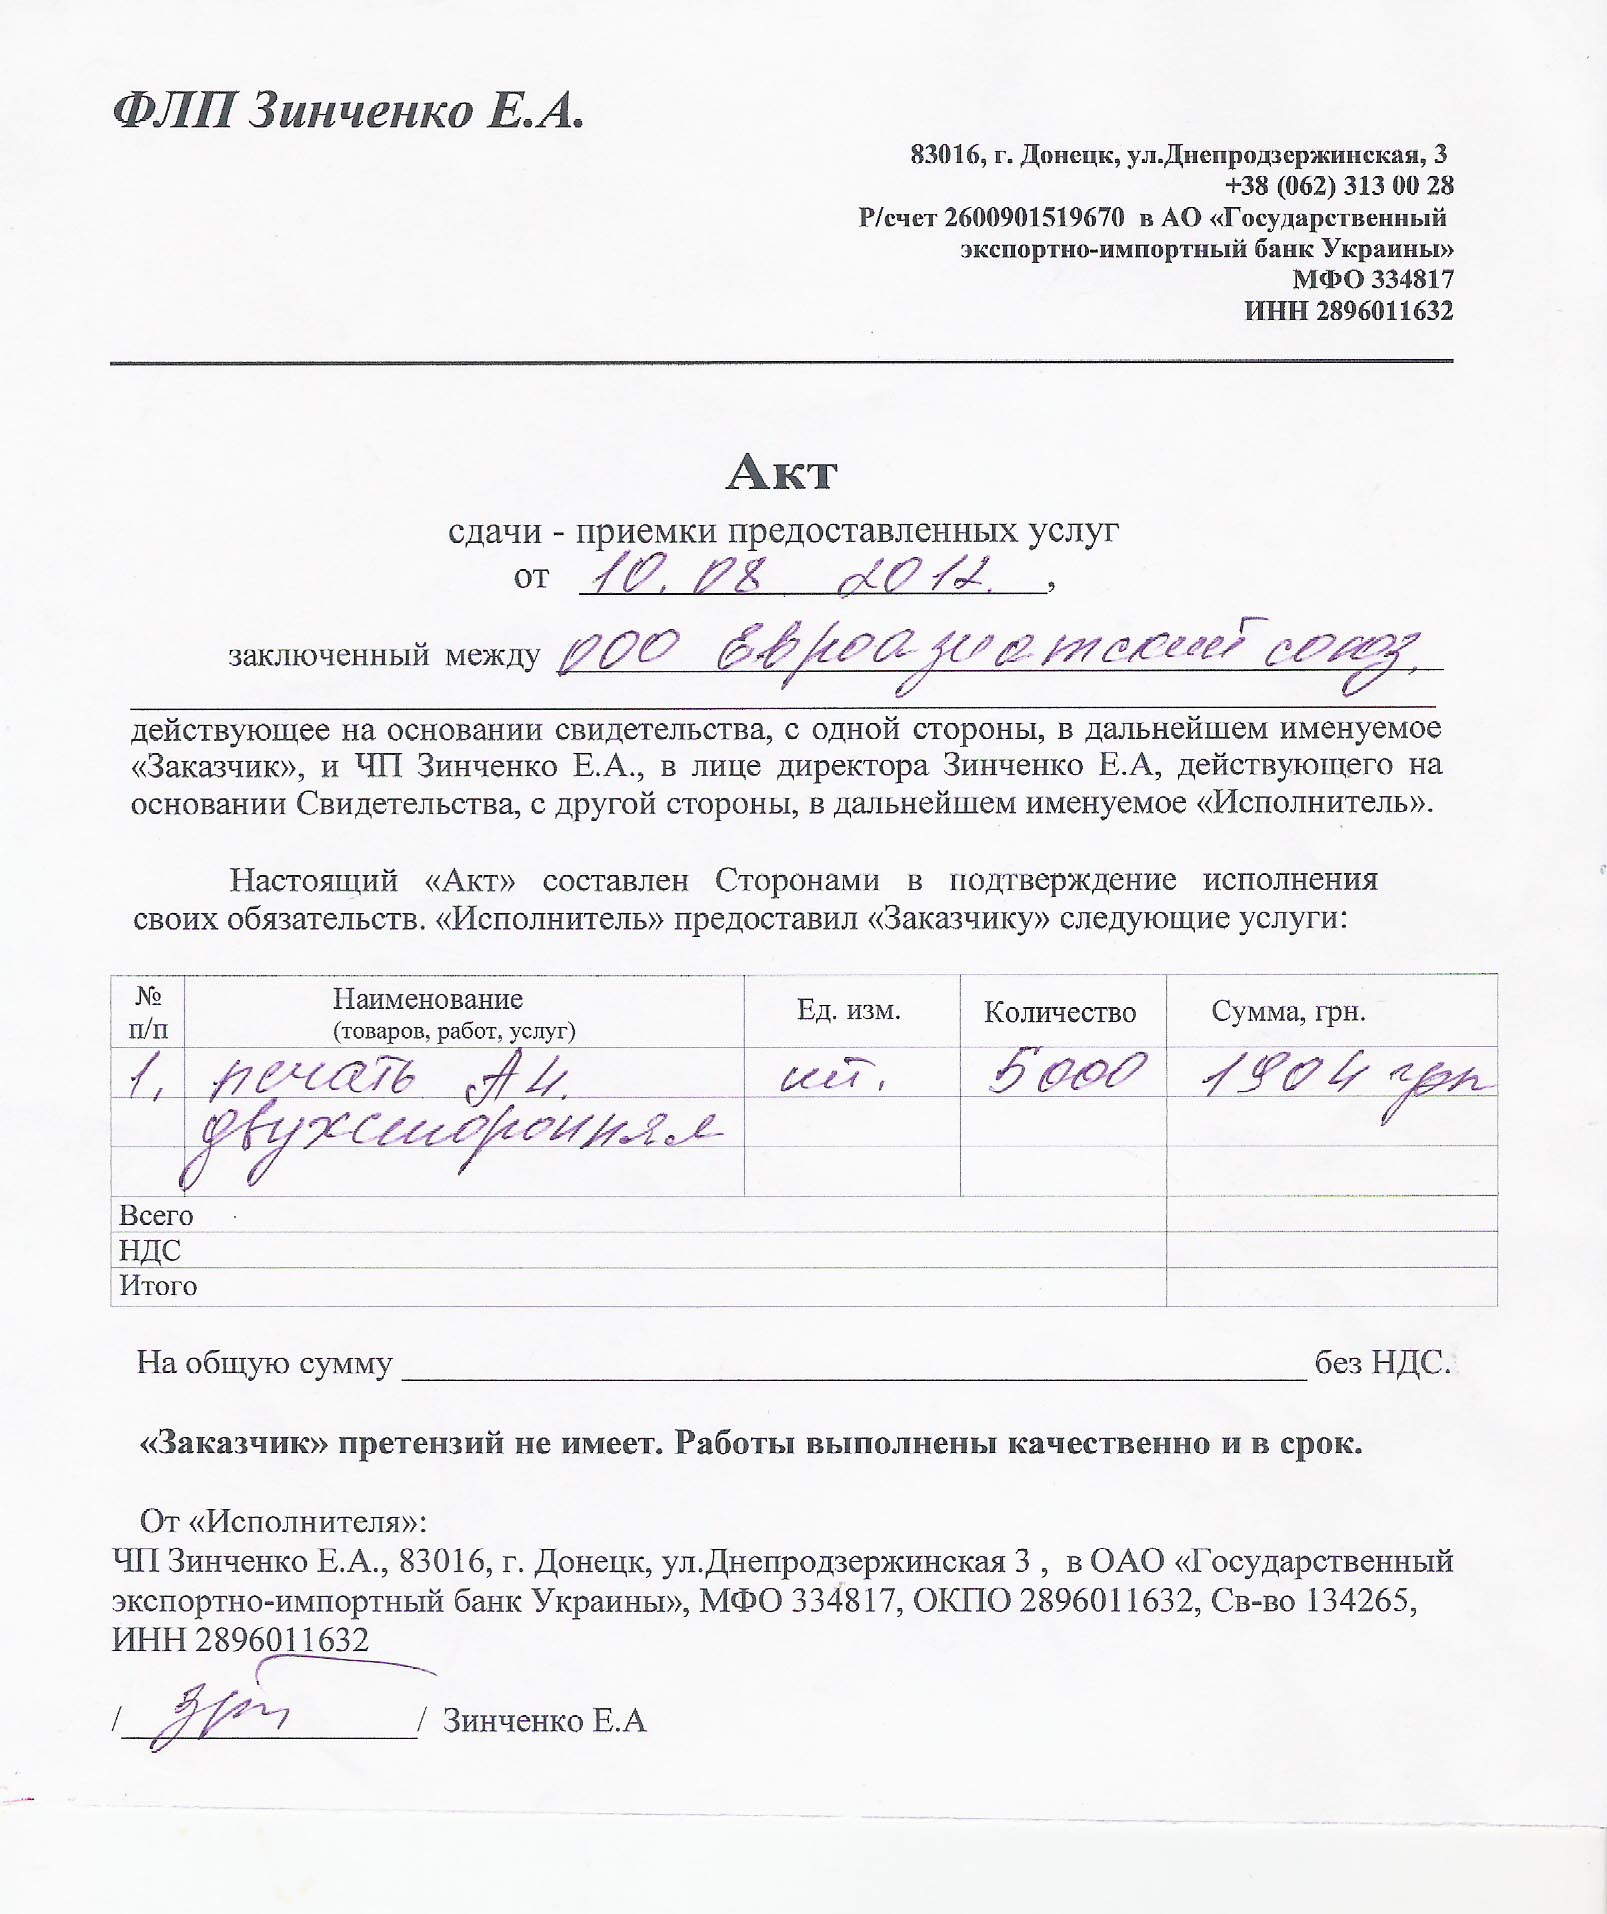 ФЛП Зинченко Е.А.
83016, г. Донецк, ул.Днепродзержинская, 3
+38 (062) 313 00 28
Р/счет 2600901519670 в АО «Государственный
экспортно-импортный банк Украины»
МФО 334817
ИНН 2896011632
Акт
сдачи - приемки предоставленных услуг
от 10.08 2012.,
заключенный между ООО Евроазиатский союз,
действующее на основании свидетельства, с одной стороны, в дальнейшем именуемое
«Заказчик», и ЧП Зинченко Е.А., в лице директора Зинченко Е.А, действующего на
основании Свидетельства, с другой стороны, в дальнейшем именуемое «Исполнитель».
Настоящий «Акт» составлен Сторонами в подтверждение исполнения
своих обязательств. «Исполнитель» предоставил «Заказчику» следующие услуги:
№ п/п Наименование (товаров, работ, услуг) Ед. изм. Количество Сумма, грн.
1. печать А4. шт. 5000 1904 грн
двухсторонняя
Всего
НДС
Итого
На общую сумму ____ без НДС.
«Заказчик» претензий не имеет. Работы выполнены качественно и в срок.
От «Исполнителя»:
ЧП Зинченко Е.А., 83016, г. Донецк, ул.Днепродзержинская 3 , в ОАО «Государственный
экспортно-импортный банк Украины», МФО 334817, ОКПО 2896011632, Св-во 134265,
ИНН 2896011632
/ / Зинченко Е.А